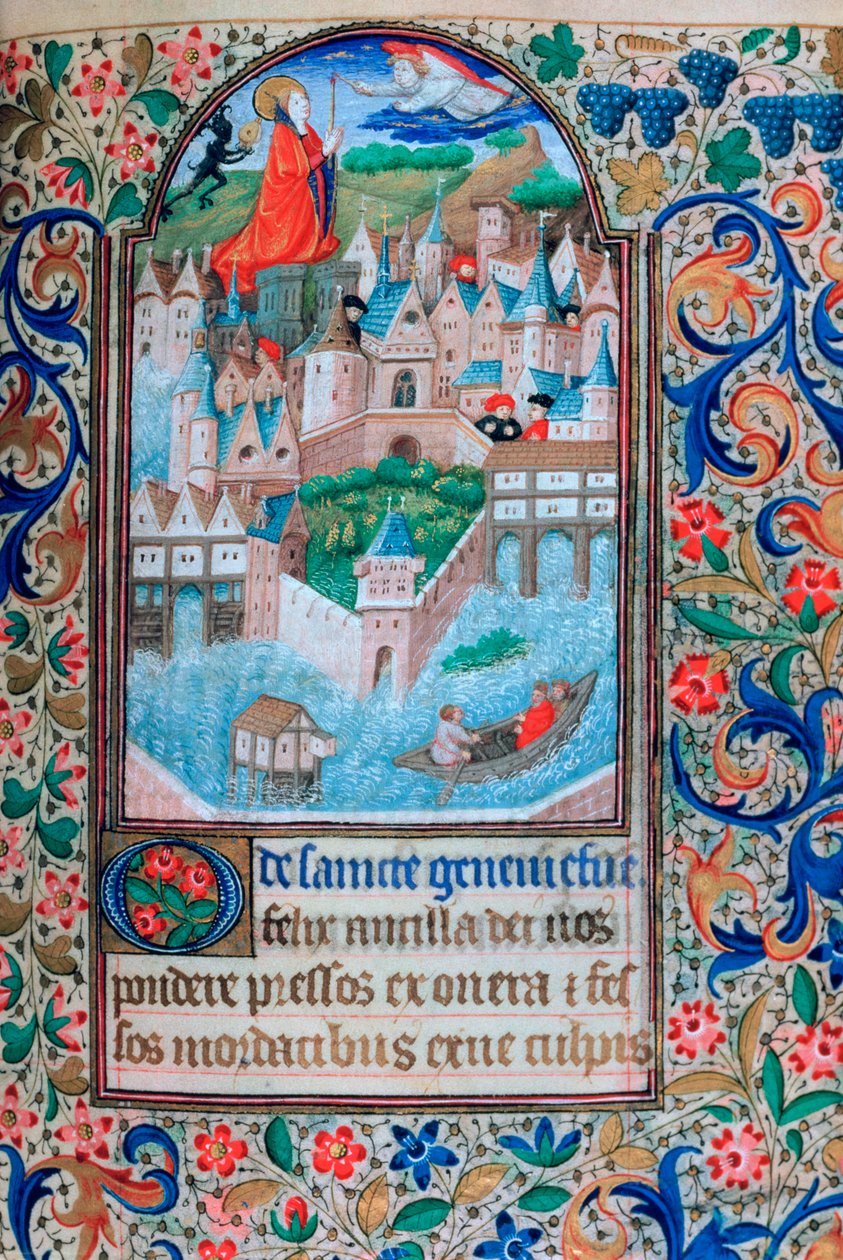 De saincte geneuiefue.
O felix ancilla dei nos
pondere pressos exonera & fes
sos mordacibus exue culpis